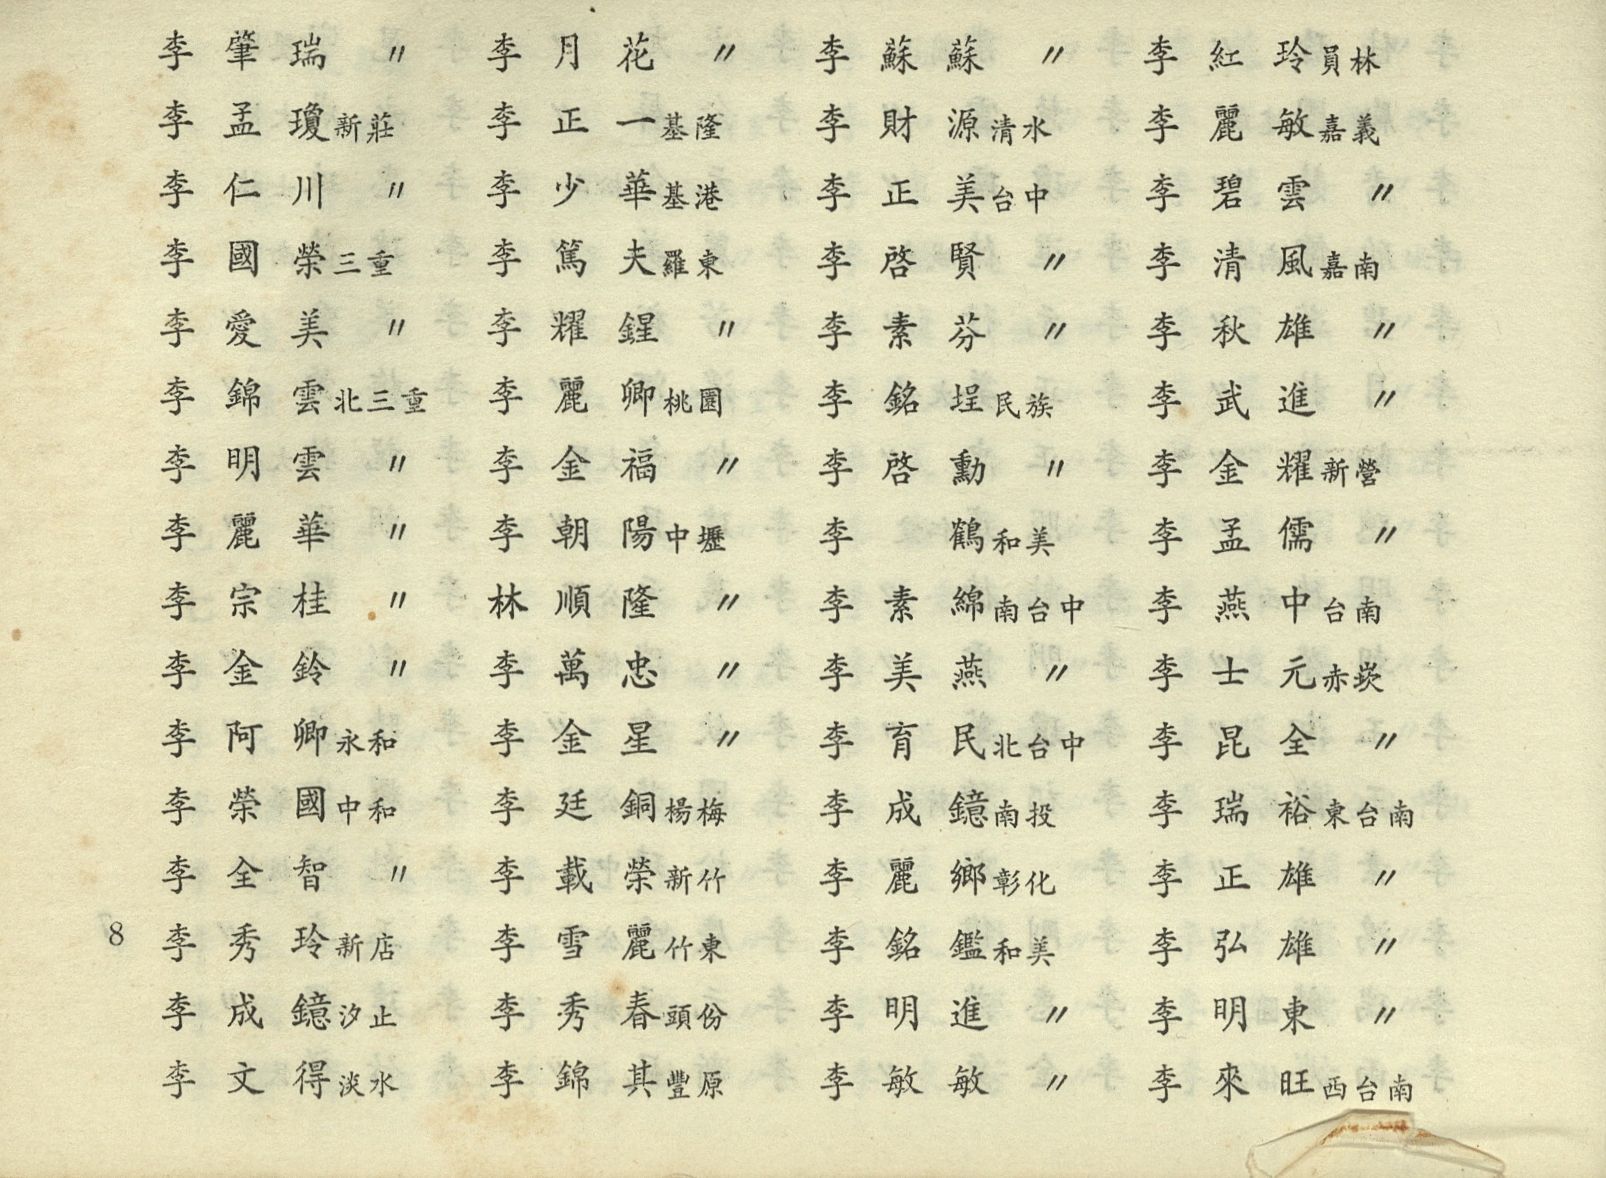 李肇瑞 〃 李月花 〃 李蘇蘇 〃 李紅玲員林
李孟瓊新莊 李正一基隆 李財源清水 李麗敏嘉義
李仁川 〃 李少華基港 李正美台中 李碧雲 〃
李國榮三重 李篤夫羅東 李啓賢 〃 李清風嘉南
李愛美 〃 李耀鋥 〃 李素芬 〃 李秋雄 〃
李錦雲北三重 李麗卿桃園 李銘埕民族 李武進 〃
李明雲 〃 李金福 〃 李啓勳 〃 李金耀新營
李麗華 〃 李朝陽中壢 李 鶴和美 李孟儒 〃
李宗桂 〃 林順隆 〃 李素綿南台中 李燕中台南
李金鈴 〃 李萬忠 〃 李美燕 〃 李士元赤崁
李阿卿永和 李金星 〃 李育民北台中 李昆全 〃
李榮國中和 李廷銅楊梅 李成鐿南投 李瑞裕東台南
李全智 〃 李載榮新竹 李麗鄉彰化 李正雄 〃
8 李秀玲新店 李雪麗竹東 李銘鑑和美 李弘雄 〃
李成鐿汐止 李秀春頭份 李明進 〃 李明東 〃
李文得淡水 李錦其豐原 李敏敏 〃 李來旺西台南